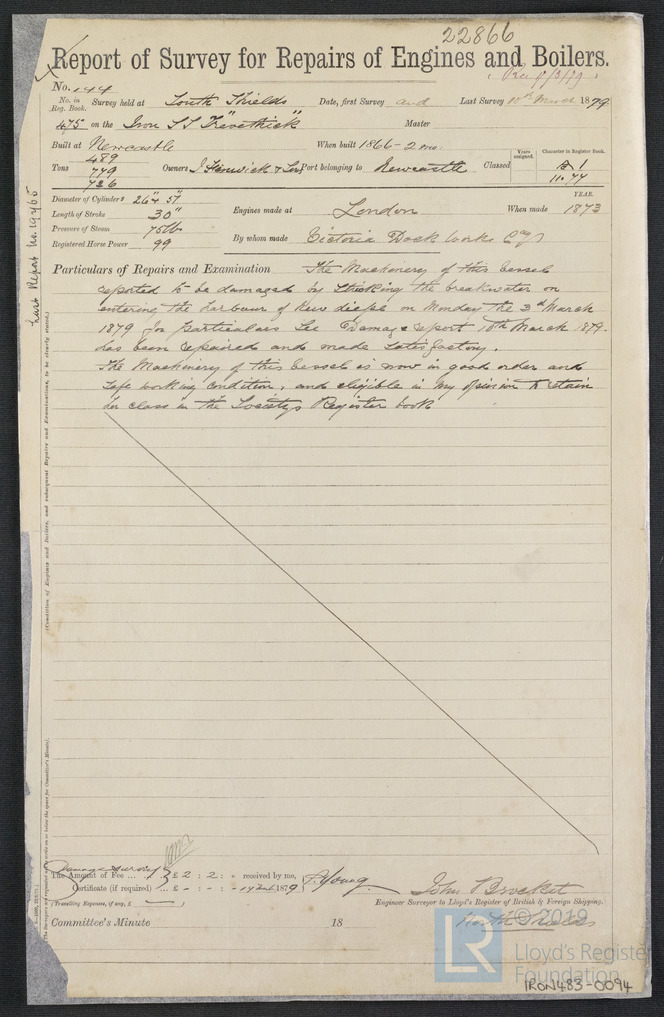 22866
Report of Survey for Repairs of Engines and Boilers.
No. 144
No. in Reg. Book. Survey held at South Shields Date, first Survey and Last Survey 10th March 1879
475 on the Iron SS "Trevethick" Master
Built at Newcastle When built 1866-2mo.
Tons 489 779 726 Owners J Fenwick & Son Port belonging to Newcastle Classed Years assigned. Character in Register Book. A1 11.77
Diameter of Cylinders 26" & 51"
Length of Stroke 30"
Pressure of Steam 75 lb
Registered Horse Power 99
Engines made at London When made YEAR. 1873
By whom made Victoria Dock Works Coy
Particulars of Repairs and Examination The Machinery of this Vessel
reported to be damaged by striking the breakwater on
entering the harbour of New dieppe on Monday the 3rd March
1879 for particulars See Damage report 10th March 1879.
has been repaired and made satisfactory.
The Machinery of this Vessel is now in good order and
safe working condition, and eligible in my opinion to retain
her class in the Societys Register book
Last Report No. 19465
Damage Survey
The Amount of Fee ... £ 2 : 2 : - received by me,
Certificate (if required) ... £ - : - : - 14 1879 J. Young
(Travelling Expenses, if any, £ )
John Brocket
Engineer Surveyor to Lloyd's Register of British & Foreign Shipping.
North Shields
Committee's Minute 18
© 2019
LR
Lloyd's Register
Foundation
IRON483-0094